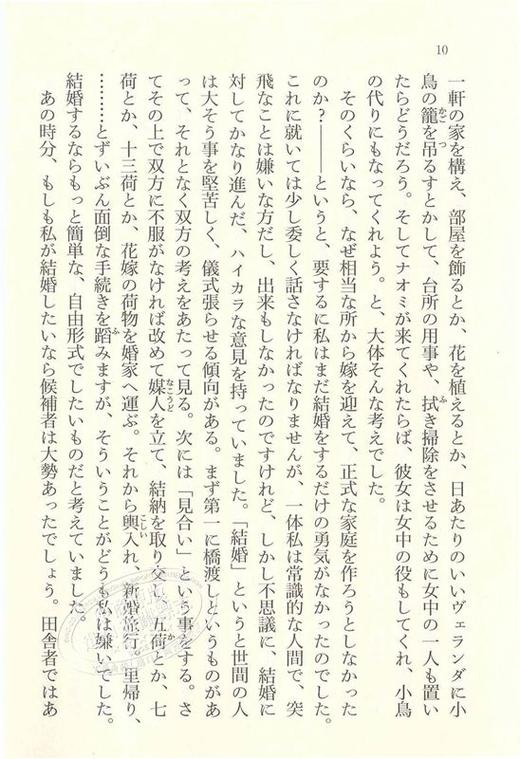 10
一軒の家を構え、部屋を飾るとか、花を植えるとか、日あたりのいいヴェランダに小
鳥の籠を吊るすとかして、台所の用事や、拭き掃除をさせるために女中の一人も置い
たらどうだろう。そしてナオミが来てくれたらば、彼女は女中の役もしてくれ、小鳥
の代りにもなってくれよう。と、大体そんな考えでした。
そのくらいなら、なぜ相当な所から嫁を迎えて、正式な家庭を作ろうとしなかった
のか?――というと、要するに私はまだ結婚をするだけの勇気がなかったのでした。
これに就いては少し委しく話さなければなりませんが、一体私は常識的な人間で、突
飛なことは嫌いな方だし、出来もしなかったのですけれど、しかし不思議に、結婚に
対してかなり進んだ、ハイカラな意見を持っていました。「結婚」というと世間の人
は大そう事を堅苦しく、儀式張らせる傾向がある。まず第一に橋渡しというものがあ
って、それとなく双方の考えをあたって見る。次には「見合い」という事をする。さ
てその上で双方に不服がなければ改めて媒人を立て、結納を取り交し、五荷とか、七
荷とか、十三荷とか、花嫁の荷物を婚家へ運ぶ。それから輿入れ、新婚旅行、里帰り、
…………とずいぶん面倒な手続きを蹈みますが、そういうことがどうも私は嫌いでした。
結婚するならもっと簡単な、自由形式でしたいものだと考えていました。
あの時分、もしも私が結婚したいなら候補者は大勢あったでしょう。田舎者ではあ